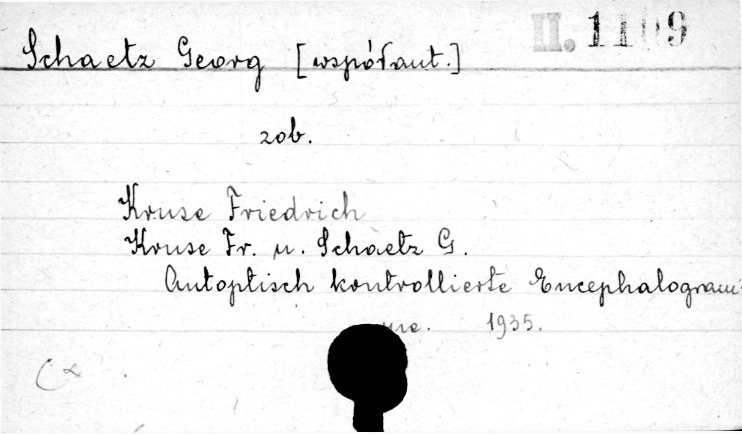 II. 1109
Schaetz Georg [współaut.]
zob.
Kruse Friedrich
Kruse Fr. u. Schaetz G.
Autoptisch kontrollierte Encephalogram-
me. 1935.